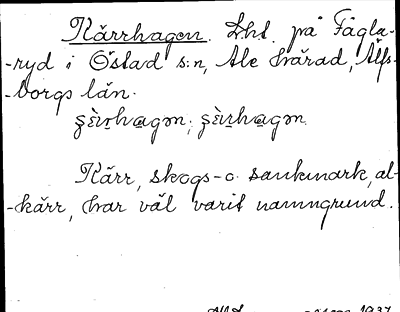 Kärrhagen. Lht. på Fågla-
-ryd i Östad s:n, Ale härad, Älfs-
-borgs län.
Kärr, skogs- o. sankmark, al-
-kärr, har väl varit namngrund.
1937